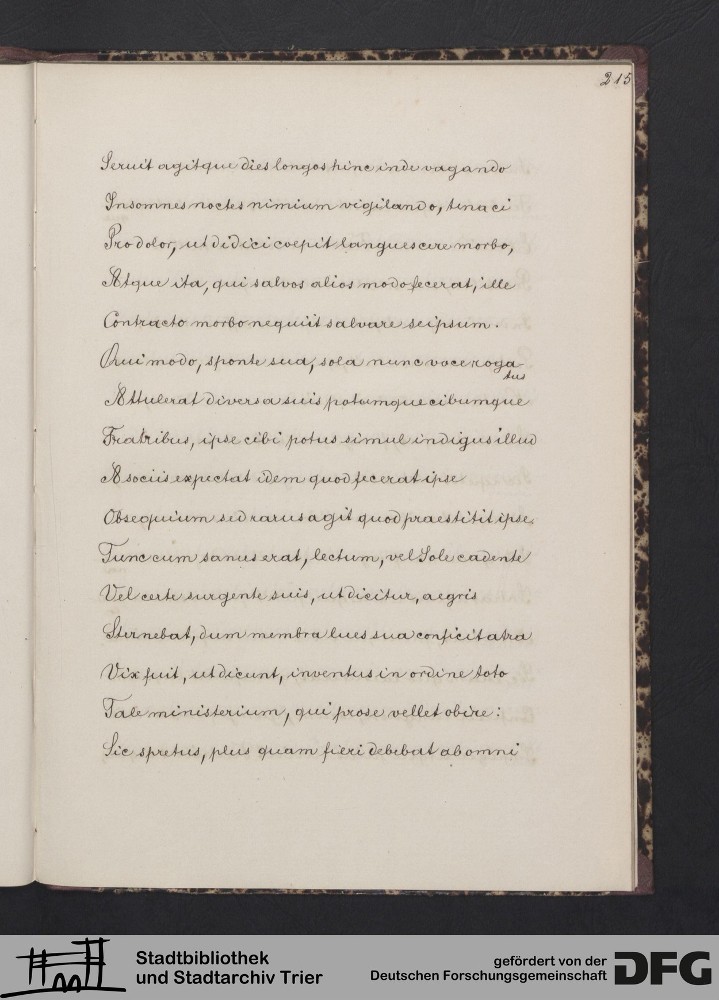 215
Seruit agitque dies longos hinc inde vagando
Insomnes noctes nimium vigilando, tenaci
Pro dolor, ut didici coepit languescere morbo,
Atque ita, qui salvos alios modo fecerat, ille
Contracto morbo nequiit salvare seipsum.
Qui modo, sponte sua, sola nunc voce roga-
tus
Attulerat diversa suis potumque cibumque
Fratribus, ipse cibi potus simul indigus illud
A sociis expectat idem quod fecerat ipse
Obsequium sed rarus agit quod praestitit ipse.
Tunc cum sanus erat, lectum, vel Sole cadente
Vel certe surgente suis, ut dicitur, aegris
Sternebat, dum membra lues sua conficit atra
Vix fuit, ut dicunt, inventus in ordine toto
Tale ministerium, qui pro se vellet obire:
Sic spretus, plus quam fieri debebat ab omni
Stadtbibliothek
und Stadtarchiv Trier
gefördert von der
Deutschen Forschungsgemeinschaft
DFG